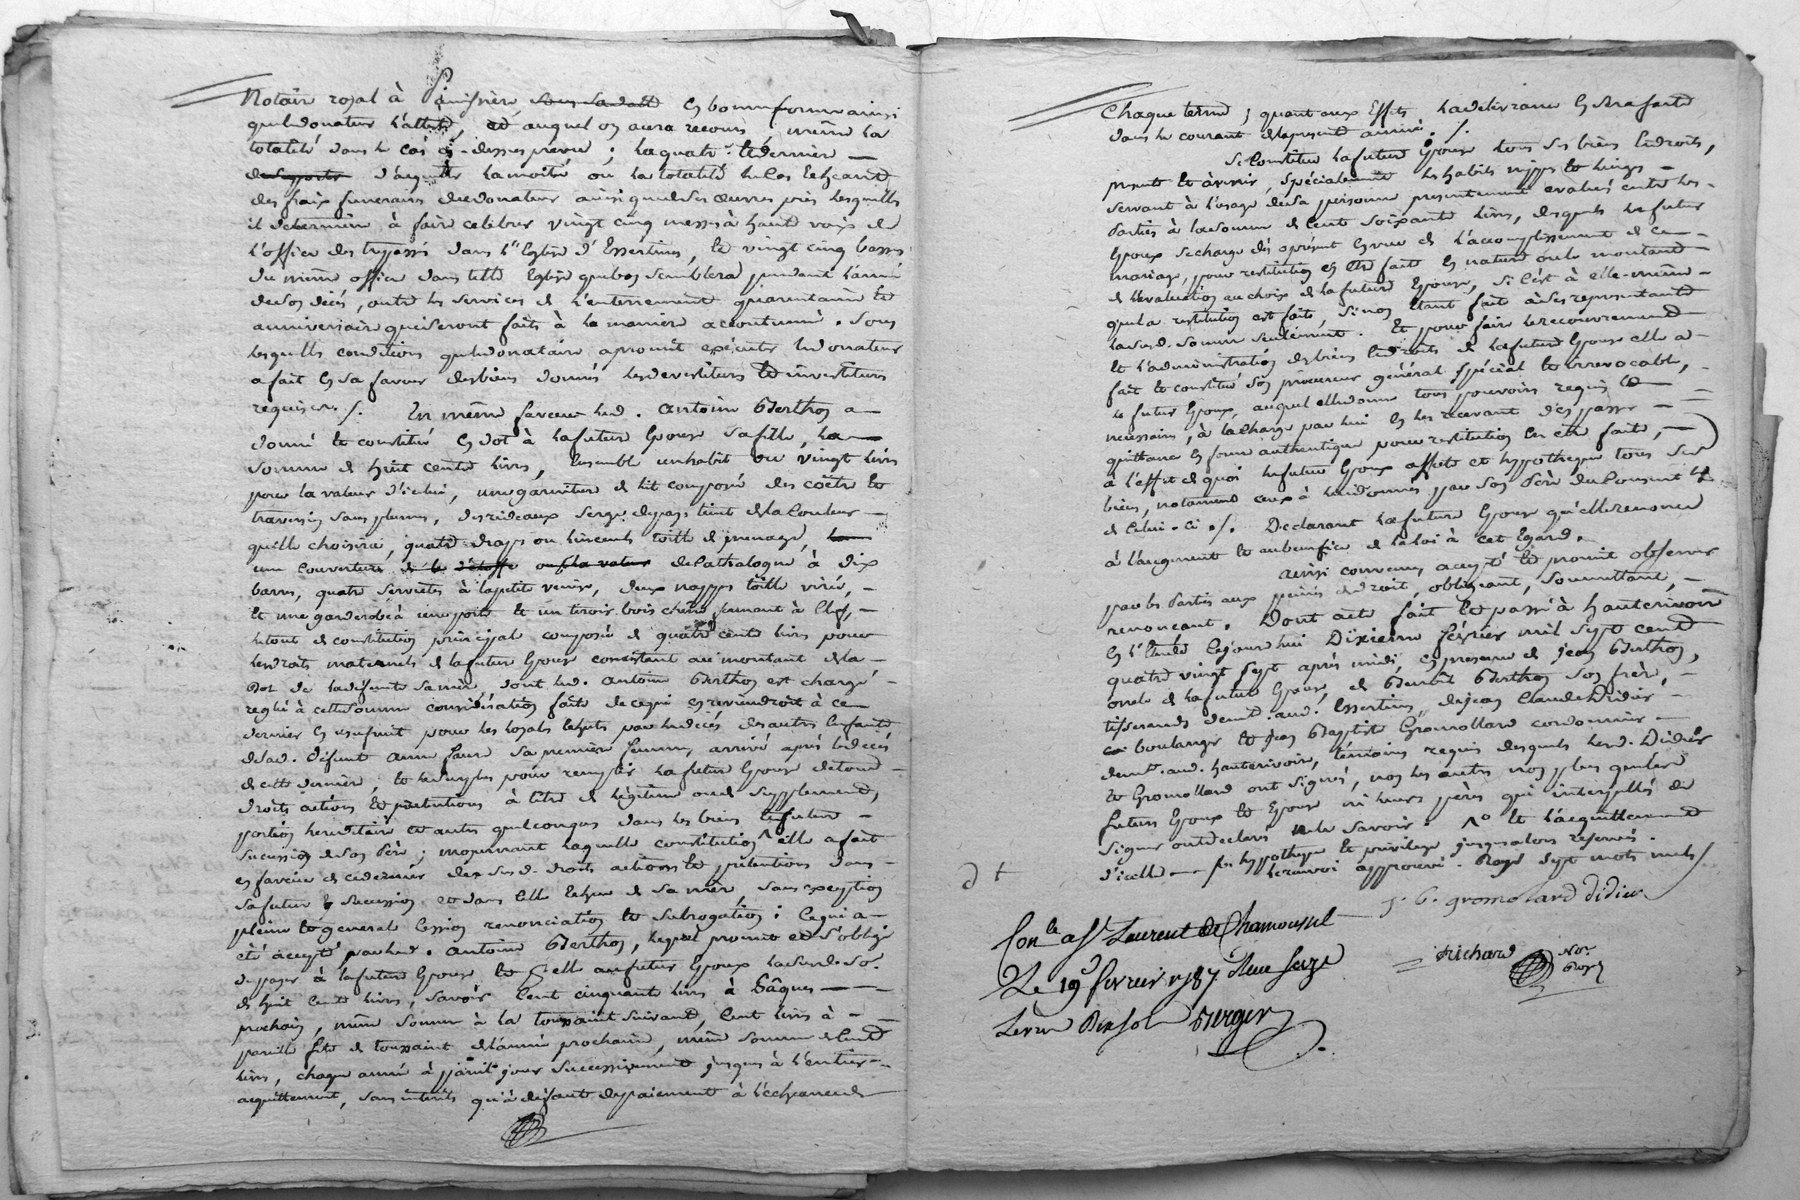 Notaire royal à Panissière sous sa datte en bonne forme ainsi
que led donateur l'atteste, et auquel on aura recours, même la
totalité dans le cas ci-dessus prévu ; la quatre et dernière
des apports d'acquitter la moitié ou la totalité le cas échéant
des fraix funeraires dudonateur ainsi que de ses œuvres pies lesquelles
il determine à faire celebrer vingt cinq messes à haute voix de
l'office des trepassés dans l'Eglise d'Essertines, et vingt cinq basses
du même office dans telle Eglise que bon semblera pendant l'année
de son décès, outre les services de l'enterrement quarantaine et
anniversaire qui seront faits à la manière accoutumée. Sous
lesquelles conditions que ledonataire a promit exécuter led donateur
a fait en sa faveur des biens donnés les devestitures et investitures
requises ./. En même faveur led. Antoine Berthon a
donné et constitué en dot à la future Epouse sa fille, la
somme de huit cents livres, Ensemble un habit ou vingt livres
pour la valeur d'icelui, une garniture de lit composée des coëtre et
traversin sans plumes, des rideaux serge depays teint de la couleur
qu'elle choisira, quatre draps ou linceuls toille de menage, la
une couverture de le d'étoffe ou sa valeur de catalogne à dix
barres, quatre serviettes à la petite venise, deux nappes toille virée,
et une garderobe à une porte et un tiroir bois cherne fermant à Clef,
le tout de constitution principal composée de quatre cents livres pour
les droits maternels de la future Epouse consistant au montant de la
Dot de la défunte sa mère, dont led. Antoine Berthon est chargé
reglé à cette somme considération faite de ce qui en reviendroit à ce
dernier en usufruit pour les loyals échuts par le décès des autres Enfants
de lad. défunte anne faure sa première femme, arrivé après le décès
de cette dernière ; et le surplus pour remplir la future Epouse de tous
droits actions et pretentions à titre de légitime ou de supplement,
portion hereditaire et autres quelconques dans les biens et future
sucession de son Père ; moyennant laquelle constitution elle a fait
en faveur de ce dernier des susd. droits actions et prétentions dans
sa future sucession et dans celle échue de sa mère, sans exception
pleine et generale Cession renonciation et subrogation ; ce qui a
été accepté par led. Antoine Berthon, lequel promet et s'oblige
de payer à la future Epouse et elle au futur Epoux la susd. so.
de huit cents livres, savoir Cent cinquante livres à Pâques
prochain, même somme à la toussaint suivant, Cent livres à
pareille fête de toussaint de l'année prochaine, même somme de Cent
livres, chaque année à pareil jour successivement jusques à l'entier
acquittement, sans interets qu'à défaut de paiement à l'échéance de
Chaque terme ; quant aux Effets la delivrance en sera faite
dans le courant de la presente année. ./.
Se Constitue la future Epouse tous ses biens et droits,
presents et à venir, spécialement les habits nippes et linges
servant à l'usage de sa personne presentement évalués entre les
Parties à la somme de Cent soixante livres, desquels le futur
Epoux se charge dès à présent en vue de l'accomplissement de ce
mariage, pour restitution en être faite en nature ou le montant
de l'évaluation au choix de la future Epouse, si c'est à elle-même
que la restitution est faite, sinon étant fait à ses representants
la susd. somme seulement. Et pour faire le recouvrement
et l'administration des biens et droits de la future Epouse elle a
fait et constitué son procureur général spécial et irrevocable,
le futur Epoux, auquel elle donne tous pouvoirs requis et
necessaires, à la charge par lui en les recevant d'en passer
quittance en forme authentique pour restitution en être faite,
à l'effet de quoi le futur Epoux affecte et hypotheque tous ses
biens, notament ceux à lui donnés par son Père du Consent.t
de Celui-ci ./. Declarant la future Epouse qu'elle renonce
à l'augment et au benefice de la loi à cet Egard.
Ainsi convenu accepté et promit observer
par les Parties aux peines de droit, obligeant, soumettant,
renonçant. Dont acte fait et passé à hauterivoire
en l'Etude Cejourd'hui Dixieme février mil sept cent
quatre vingt sept après midi, en presence de Jean Berthon,
oncle de la future Epouse, de Benoît Berthon son frère,
tisserands demt. aud. Essertines, de Jean Claude Didier
boulanger et Jean Baptiste Gromollard cordonnier
demt. aud. hauterivoire, témoins requis desquels lesd. Didier
et Gromollard ont signés, non les autres non plus que lesd
futurs Epoux et Epouse ni leurs pères qui interpellés de
signer ont declaré ne le savoir. ^o et l'acquittement
d'icelle p.r hypotheque et privilege jusqu'alors reservés.
le renvoi approuvé. Rayé sept mots nuls /
J. b. gromolard Didier
Con.le a St. Laurent de Chamousset
Le 19 fevrier 1787 Reçu seize
Livres dix sols Berger
Richard No.re
Royal